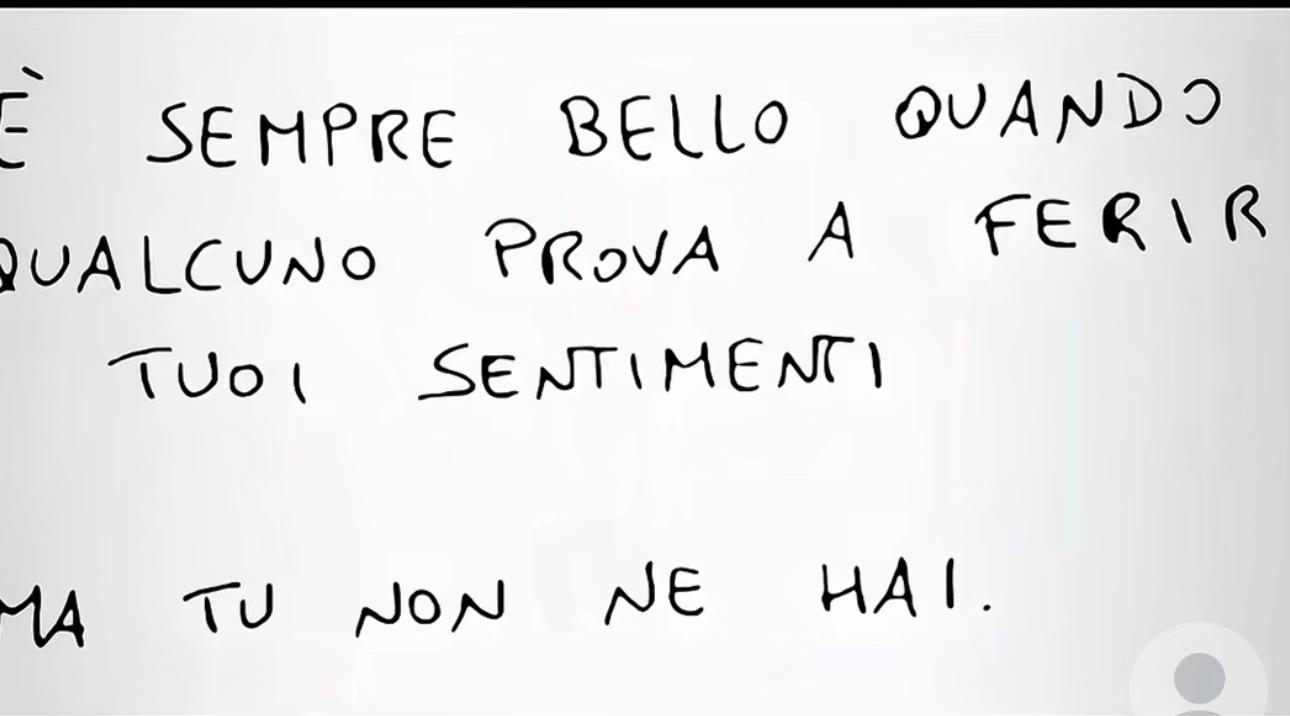 È SEMPRE BELLO QUANDO
QUALCUNO PROVA A FERIR
TUOI SENTIMENTI
MA TU NON NE HAI.